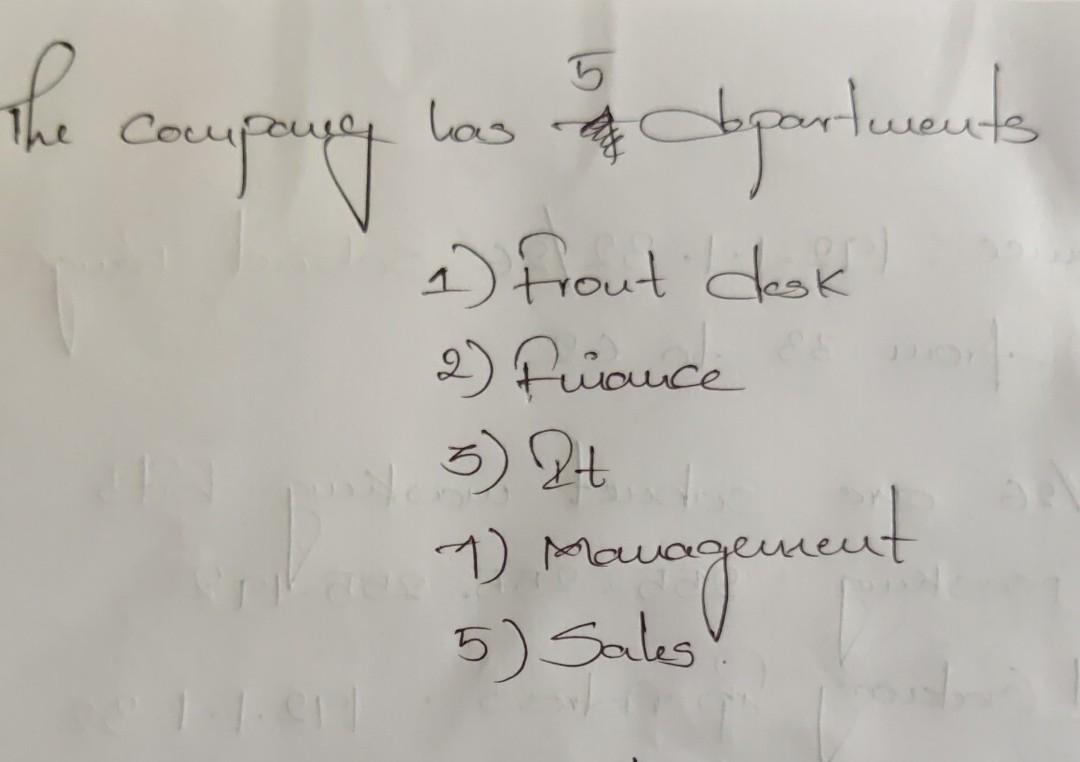 The company has 5 dpartments
1) Front desk
2) Finance
3) It
4) Management
5) Sales.